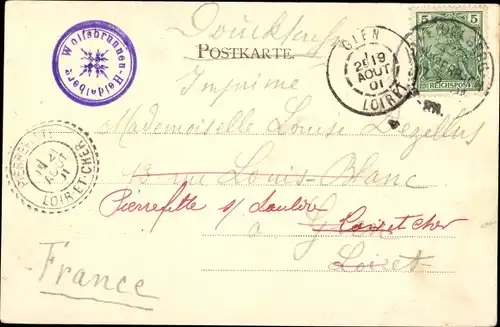 Drucksache
POSTKARTE.
Imprimé
Wolfsbrunnen-Heidelberg
GIEN
2E 19
AOUT
01
LOIRET
5 5
REICHSPOST
PIERREFITTE
AOUT
01
LOIR-ET-CHER
Mademoiselle Louise Dezellus
3 rue Louis-Blanc
Pierrefitte s/ Sauldre
à Gien Loir et cher
Loiret
France